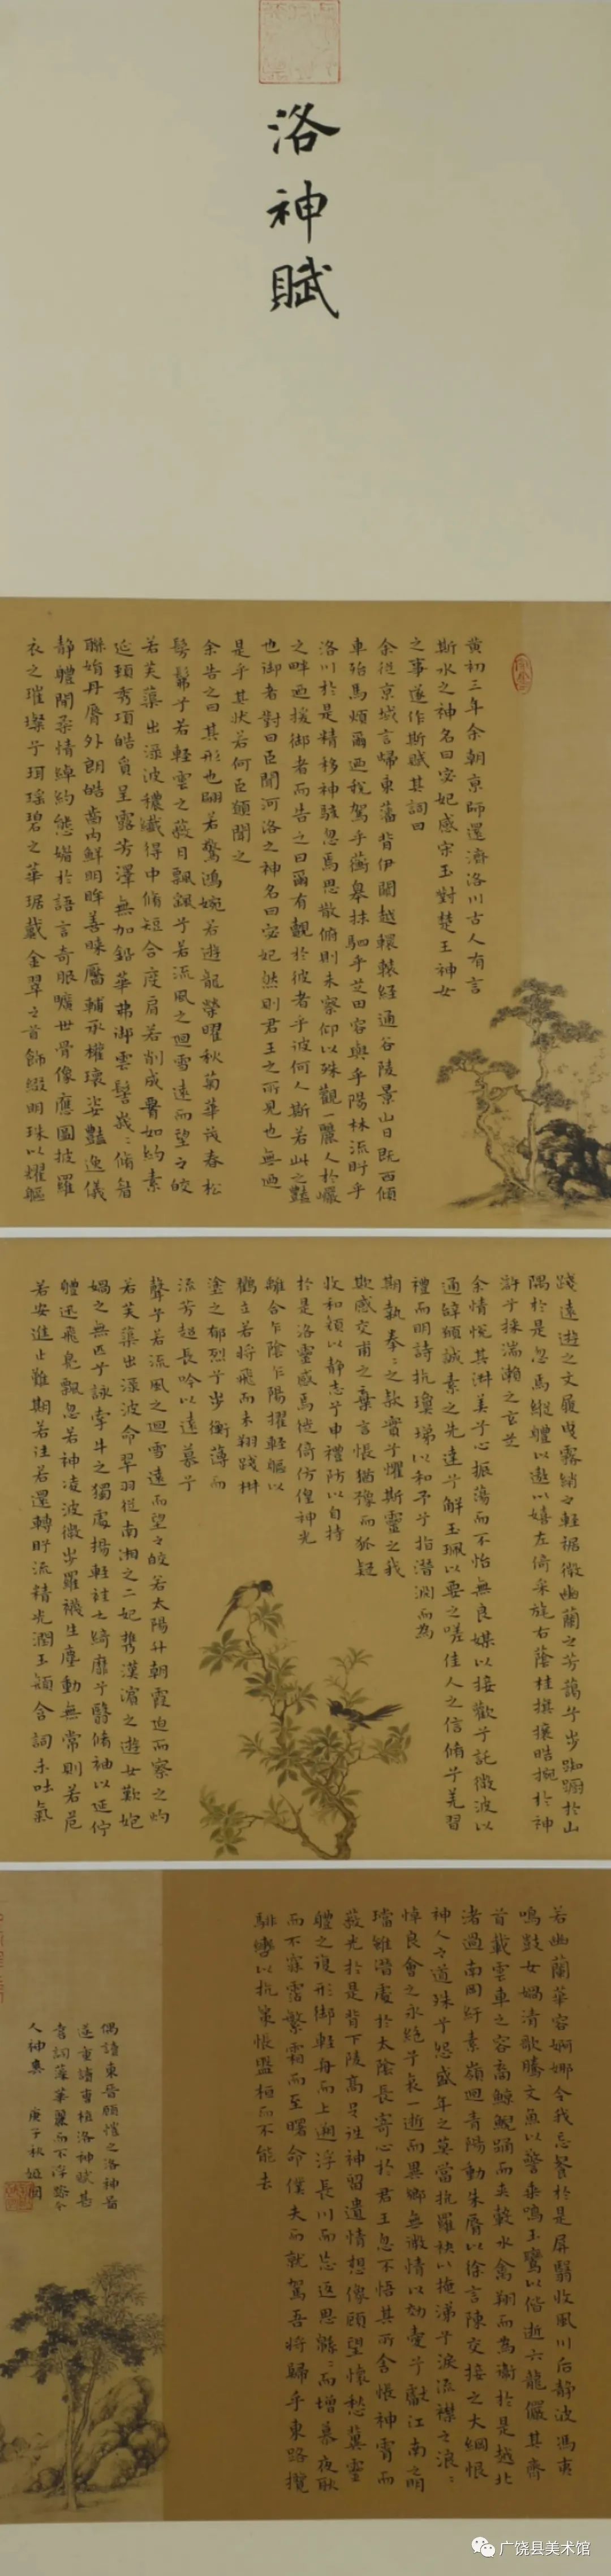 洛神賦
黃初三年余朝京師還濟洛川古人有言
斯水之神名曰宓妃感宋玉對楚王神女
之事遂作斯賦其詞曰
余從京域言歸東藩背伊闕越轘轅經通谷陵景山日既西傾
車殆馬煩爾迺稅駕乎蘅皋秣駟乎芝田容與乎陽林流眄乎
洛川於是精移神駭忽焉思散俯則未察仰以殊觀一麗人於巖
之畔迺援御者而告之曰爾有覿於彼者乎彼何人斯若此之豔
也御者對曰臣聞河洛之神名曰宓妃然則君王之所見也無迺
是乎其狀若何臣願聞之
余告之曰其形也翩若驚鴻婉若遊龍榮曜秋菊華茂春松
髣髴兮若輕雲之蔽月飄颻兮若流風之迴雪遠而望之皎
若芙蕖出淥波穠纖得中脩短合度肩若削成腰如約素
延頸秀項皓質呈露芳澤無加鉛華弗御雲髻峩〻脩眉
聯娟丹脣外朗皓齒內鮮明眸善睞靨輔承權瓌姿豔逸儀
靜軆閒柔情綽約媚於語言奇服曠世骨像應圖披羅
衣之璀璨兮珥瑤碧之華琚戴金翠之首飾綴明珠以耀軀
踐遠遊之文履曳霧綃之輕裾微幽蘭之芳藹兮步踟躕於山
隅於是忽焉縱軆以遨以嬉左倚采旄右蔭桂旗攘皓腕於神
滸兮採湍瀨之玄芝
余情悅其淑美兮心振蕩而不怡無良媒以接歡兮託微波以
通辭願誠素之先達兮解玉珮以要之嗟佳人之信脩兮羌習
禮而明詩抗瓊珶以和予兮指潛淵而為
期執拳〻之款實兮懼斯靈之我
欺感交甫之棄言悵猶豫而狐疑
收和顏以靜志兮申禮防以自持
於是洛靈感焉徙倚彷徨神光
離合乍陰乍陽擢輕軀以
鶴立若將飛而未翔踐椒
塗之郁烈兮步衡薄而
流芳超長吟以遠慕兮
聲兮若流風之迴雪遠而望之皎若太陽升朝霞迫而察之灼
若芙蕖出淥波命翠羽從南湘之二妃攜漢濱之遊女歎匏
媧之無匹兮詠牽牛之獨處揚輕袿之綺靡兮翳脩袖以延佇
軆迅飛鳧飄忽若神凌波微步羅襪生塵動無常則若危
若安進止難期若往若還轉眄流精光潤玉顏含詞未吐氣
若幽蘭華容婀娜令我忘餐於是屏翳收風川后靜波馮夷
鳴鼓女媧清歌騰文魚以警乘鳴玉鸞以偕逝六龍儼其齊
首載雲車之容裔鯨鯢踴而夾轂水禽翔而為衛於是越北
渚過南岡紆素嶺迴青陽動朱脣以徐言陳交接之大綱恨
神人之道殊兮怨盛年之莫當抗羅袂以掩涕兮淚流襟之浪〻
悼良會之永絕兮哀一逝而異鄉無微情以効愛兮獻江南之明
璫雖潛處於太陰長寄心於君王忽不悟其所舍悵神霄而
蔽光於是背下陵高足往神留遺情想像顧望懷愁冀靈
軆之復形御輕舟而上遡浮長川而忘返思緜〻而增慕夜耿
而不寐霑繁霜而至曙命僕夫而就駕吾將歸乎東路攬
騑轡以抗策悵盤桓而不能去
偶讀東晉顧愷之洛神圖
遂重讀曹植洛神賦其
言詞華麗而不浮
人神 庚子秋
广饶县美术馆